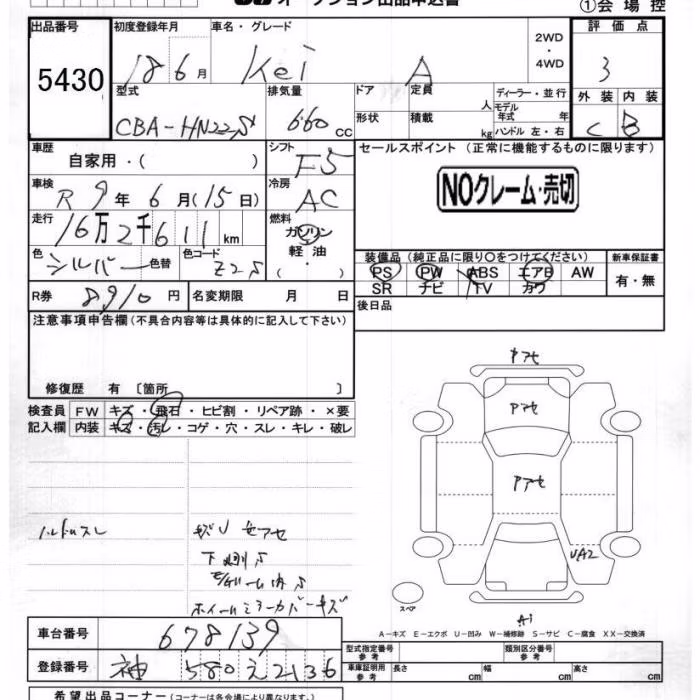 オークション出品申込書
①会場控
出品番号 初度登録年月 車名・グレード 2WD・4WD 評価点
5430 18 6月 Kei A 3
型式 排気量 ドア 定員 人 ディーラー・並行 外装 内装
CBA-HN22S 660 CC 形状 積載 kg モデル年式 年 ハンドル 左・右 C B
車歴 自家用・( ) シフト F5 セールスポイント (正常に機能するものに限ります)
車検 R9年6月(15日) 冷房 AC NOクレーム・売切
走行 16万2千611km 燃料 ガソリン・軽油・( )
色 シルバー 色替 色コード Z2S 装備品(純正品に限り○をつけてください) 新車保証書
PS PW ABS エアB AW 有・無
SR ナビ TV カワ
R券 8910円 名変期限 月 日 後日品
注意事項申告欄(不具合内容等は具体的に記入して下さい)
修復歴 有 〔箇所 〕
検査員 FW キズ・飛石・ヒビ割・リペア跡・×要
記入欄 内装 キズ・汚レ・コゲ・穴・スレ・キレ・破レ
アセ
アセ
アセ
ハンドルスレ
UA2
スペア
ホイールミラーカバーキズ
A-キズ E-エクボ U-凹み W-補修跡 S-サビ C-腐食 XX-交換済
車台番号 678139
登録番号 神 580 え 2136
型式指定番号 参考 類別区分番号 参考
車庫証明用 参考 長さ cm 幅 cm 高さ cm
希望出品コーナー(コーナーは各会場により異なります)